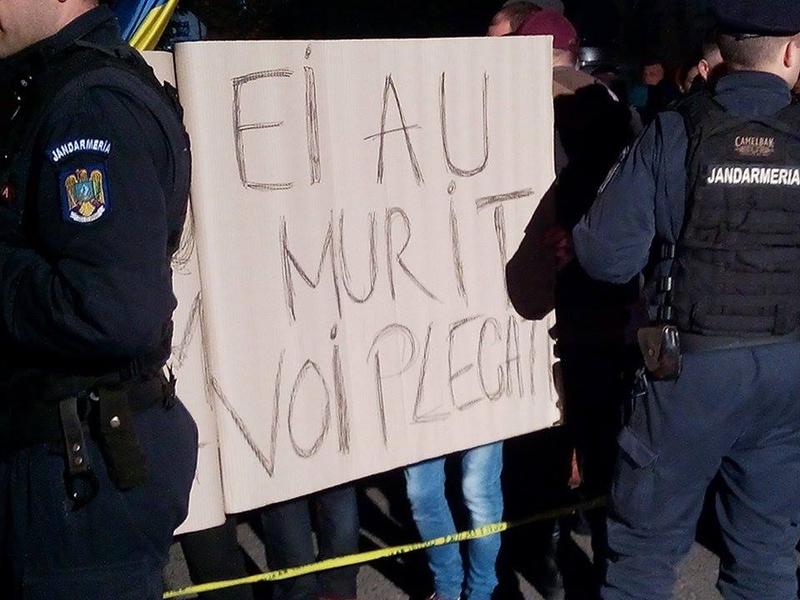 JANDARMERIA
EI AU
MURIT
VOI PLECAȚI
CAMELBAK
JANDARMERIA